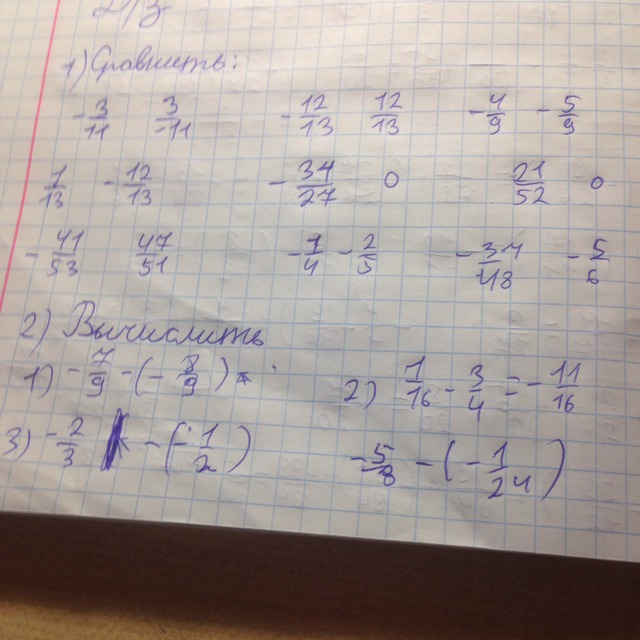 Д/з
1) Сравнить:
-3/11 3/-11 -12/13 12/13 -4/9 -5/9
1/13 -12/13 -34/27 0 21/52 0
-41/53 47/51 -1/4 -2/5 -37/48 -5/6
2) Вычислить
1) -7/9 -(-8/9) = 2) 1/16 - 3/4 = -11/16
3) -2/3 -(-1/2) -5/8 -(-1/24)